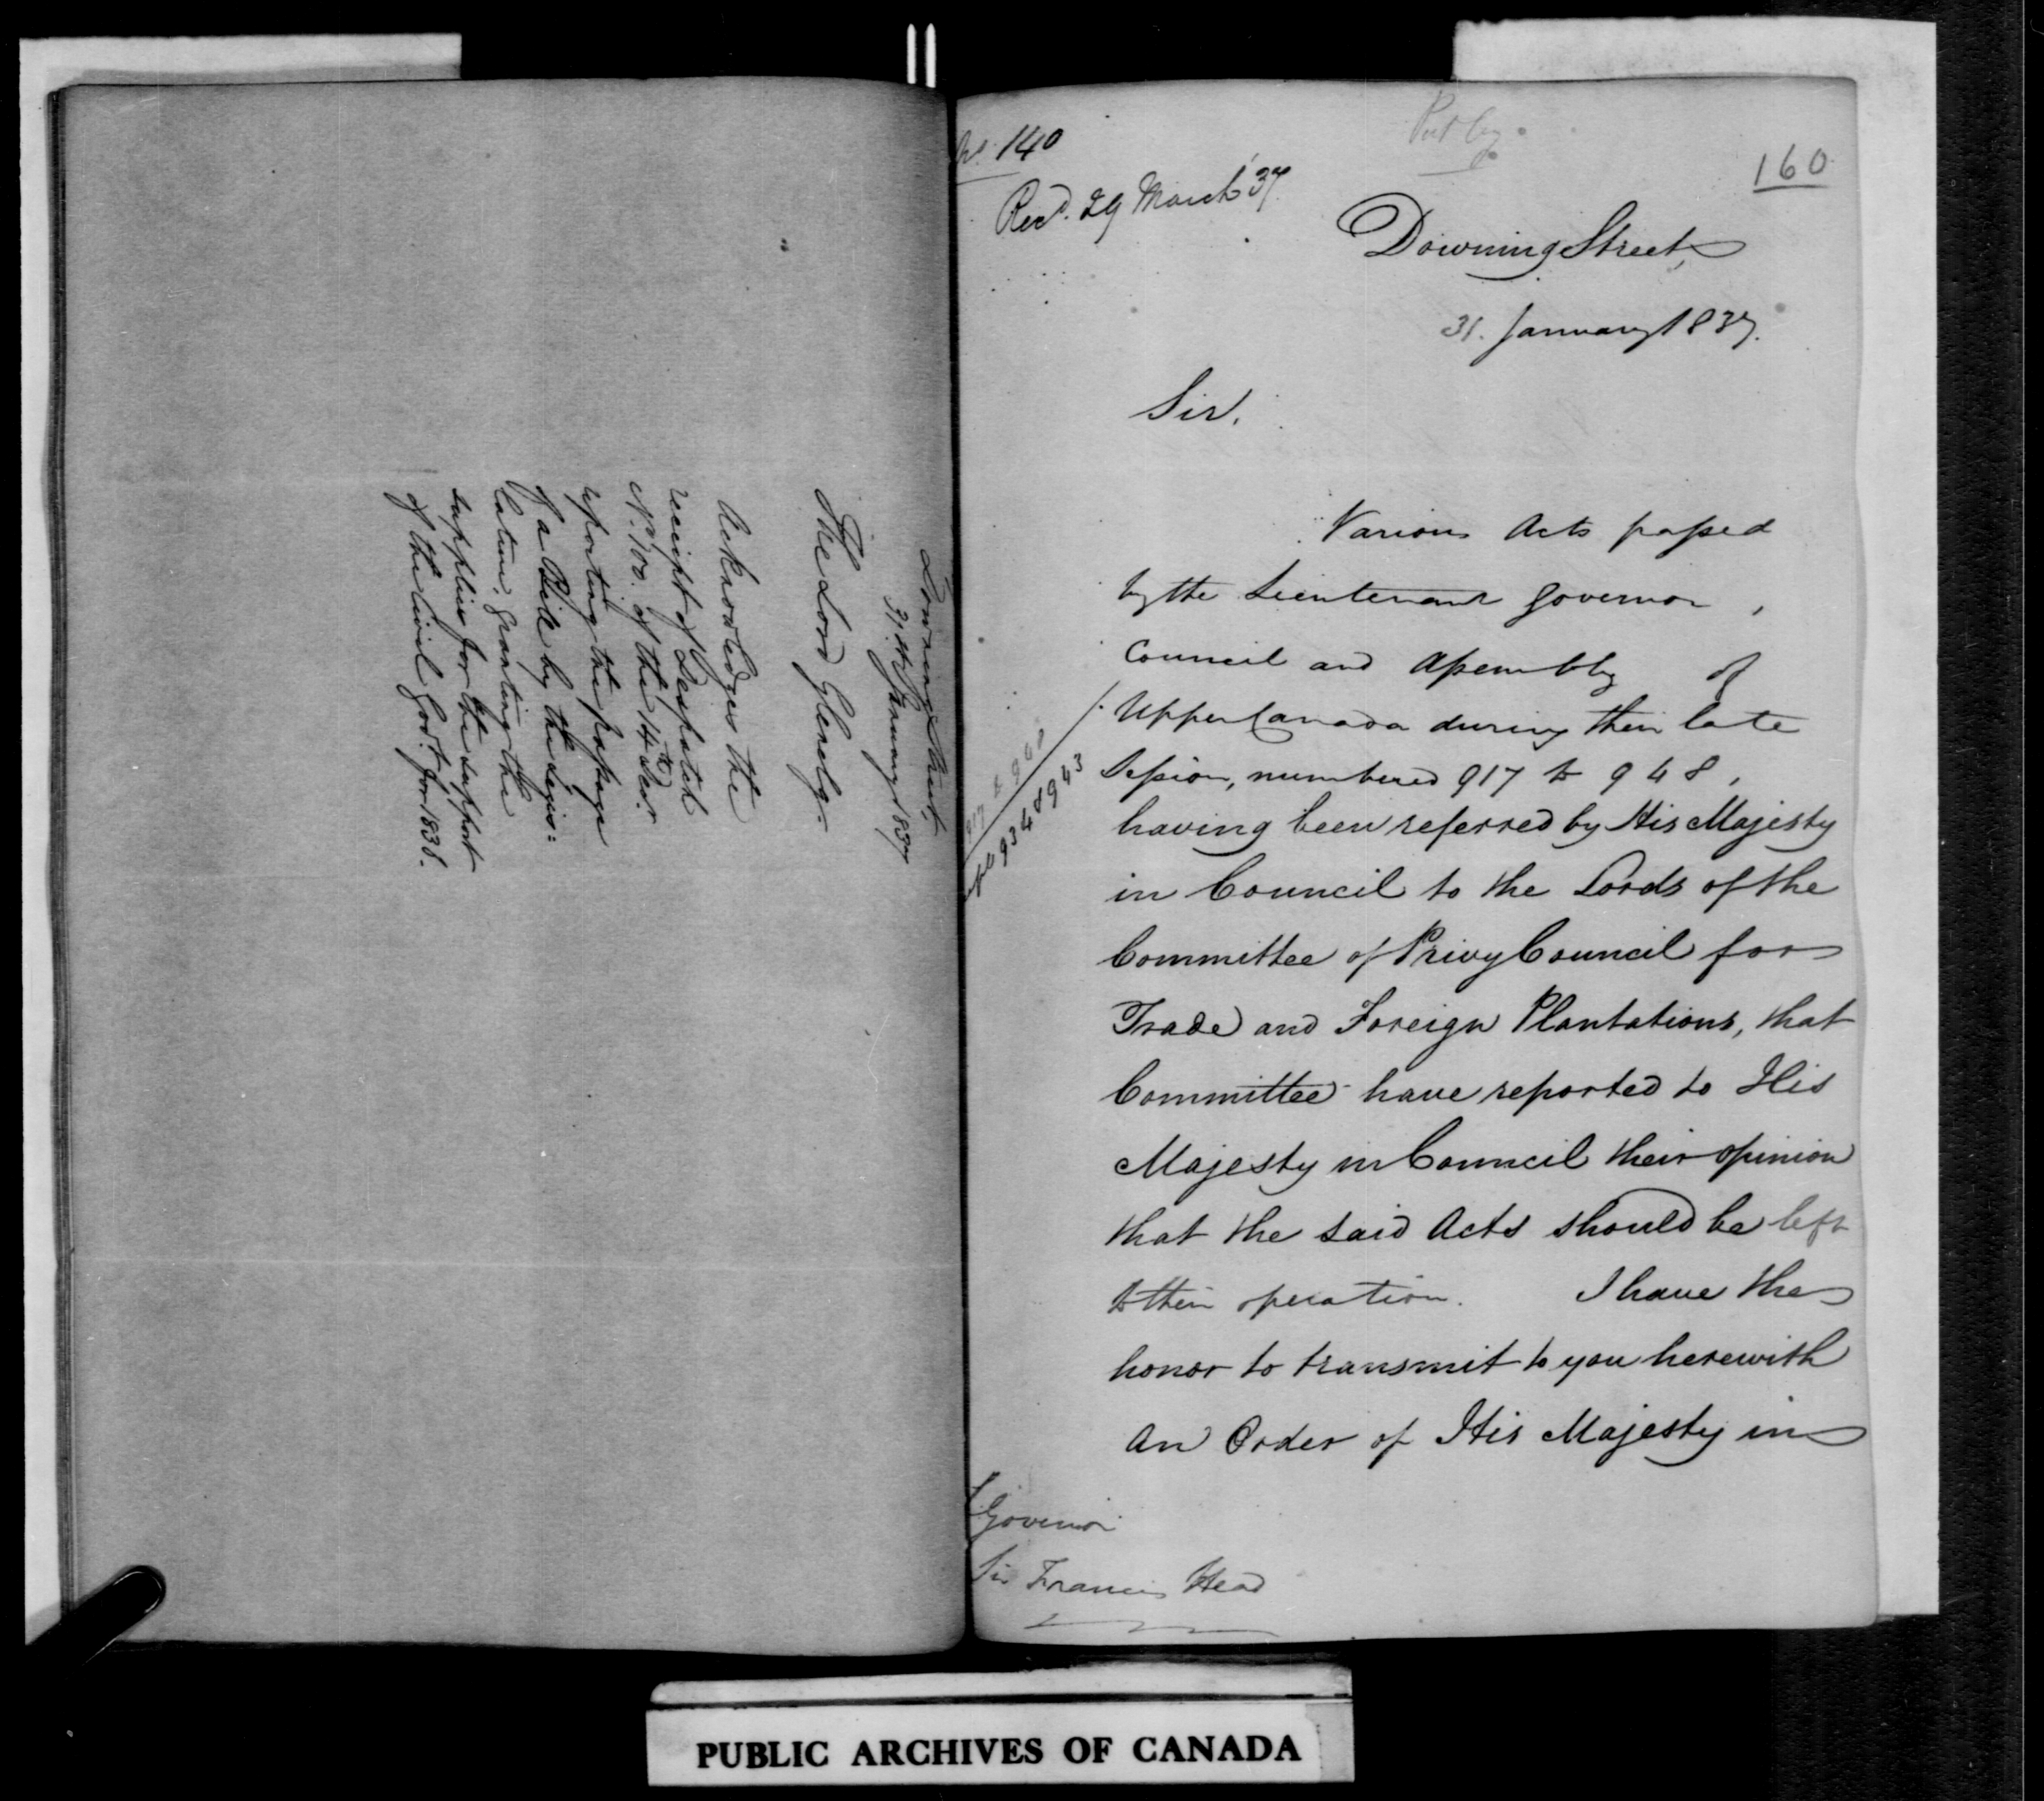 Downing Street,
31st January 1837
The Lord Glenelg.
Acknowledges the
receipt of Despatch
No. 100. of the 14th Decr.
reporting the passage
of a Bill by the Legis=
lature, granting the
supplies for the support
of the Civil Govt. for 1838.
No. 140
Put by.
160
Recd. 29 March '37.
Downing Street,
31. January 1837.
Sir,
Various Acts passed
by the Lieutenant Governor,
Council and Assembly of
Upper Canada during their late
Session, numbered 917 to 948,
917 to 940
934 & 943
having been referred by His Majesty
in Council to the Lords of the
Committee of Privy Council for
Trade and Foreign Plantations, that
Committee have reported to His
Majesty in Council their opinion
that the said Acts should be left
to their operation. I have the
honor to transmit to you herewith
an Order of His Majesty in
Governor
Sir Francis Head
PUBLIC ARCHIVES OF CANADA